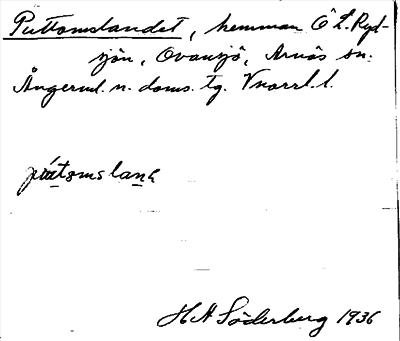 Puttomslandet, hemman Ö L. Ryd-
sjön, Ovansjö, Arnäs sn.
Ångerml. n. doms. tg. Vnorrl. l.
púttomslanḁ
H A Söderberg 1936